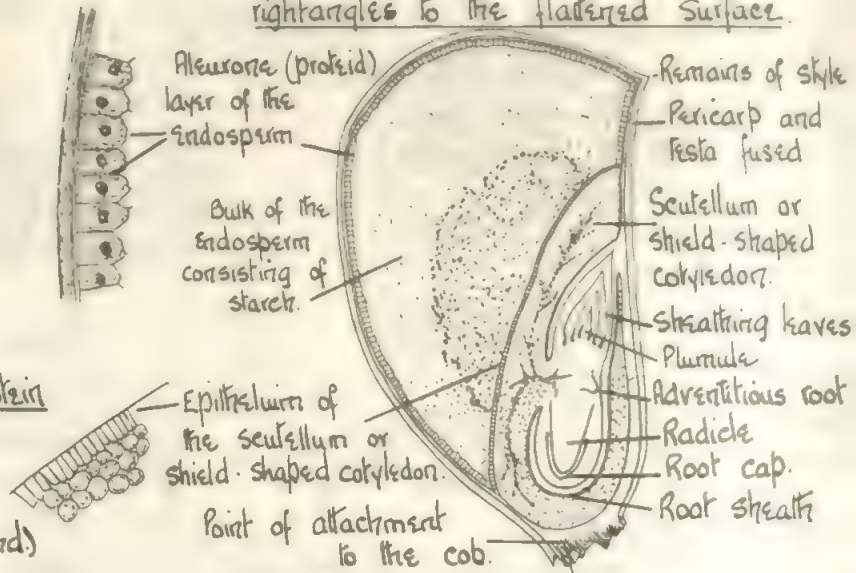 rightangles to the flattened Surface.
Aleurone (proteid)
layer of the
Endosperm
Bulk of the
Endosperm
consisting of
starch.
Epithelium of
the scutellum or
shield-shaped cotyledon.
Point of attachment
to the cob.
Remains of style
Pericarp and
Testa fused
Scutellum or
shield-shaped
cotyledon.
Sheathing leaves
Plumule
Adventitious root
Radicle
Root cap.
Root sheath